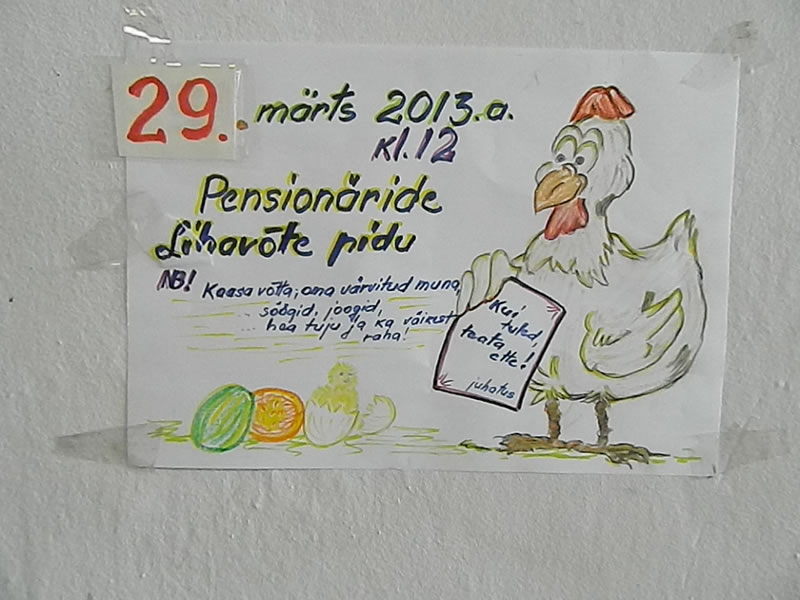 29. märts 2013.a.
kl.12
Pensionäride
Lihavõte pidu
NB! Kaasa võtta; oma värvitud muna,
söögid, joogid,
hea tuju ja ka väikest
raha!
Kui
tuled,
teata
ette!
juhatus